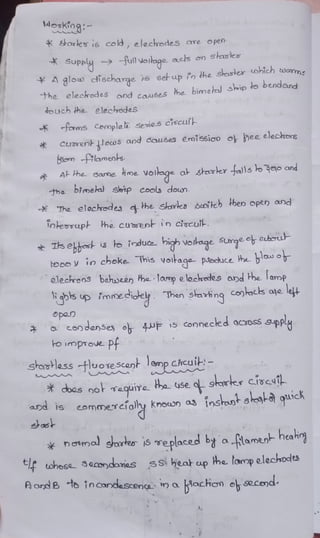 Working:-
* starter is cold, electrodes are open
* supply → full voltage acts on starter
* A glow discharge is set up in the starter which warms
the electrodes and causes the bimetal strip to bend and
touch the electrodes
* forms complete series circuit
* current flows and causes emission of free electrons
from filaments
* At the same time voltage at starter falls to zero and
the bimetal strip cools down.
* The electrodes of the starter switch then open and
interrupt the current in circuit.
* Its effect is to induce high voltage surge of about
1000 V in choke. This voltage produce the flow of
electrons between the lamp electrodes and the lamp
lights up immediately. Then starting contacts are left
open
* a condenser of 4μF is connected across supply
to improve pf
startless fluorescent lamp circuit:-
* does not require the use of starter circuit
and is commercially known as instant start or quick
start
* normal starter is replaced by a filament heating
t/f whose secondaries SS heat up the lamp electrodes
A and B to incandescence in a fraction of second.